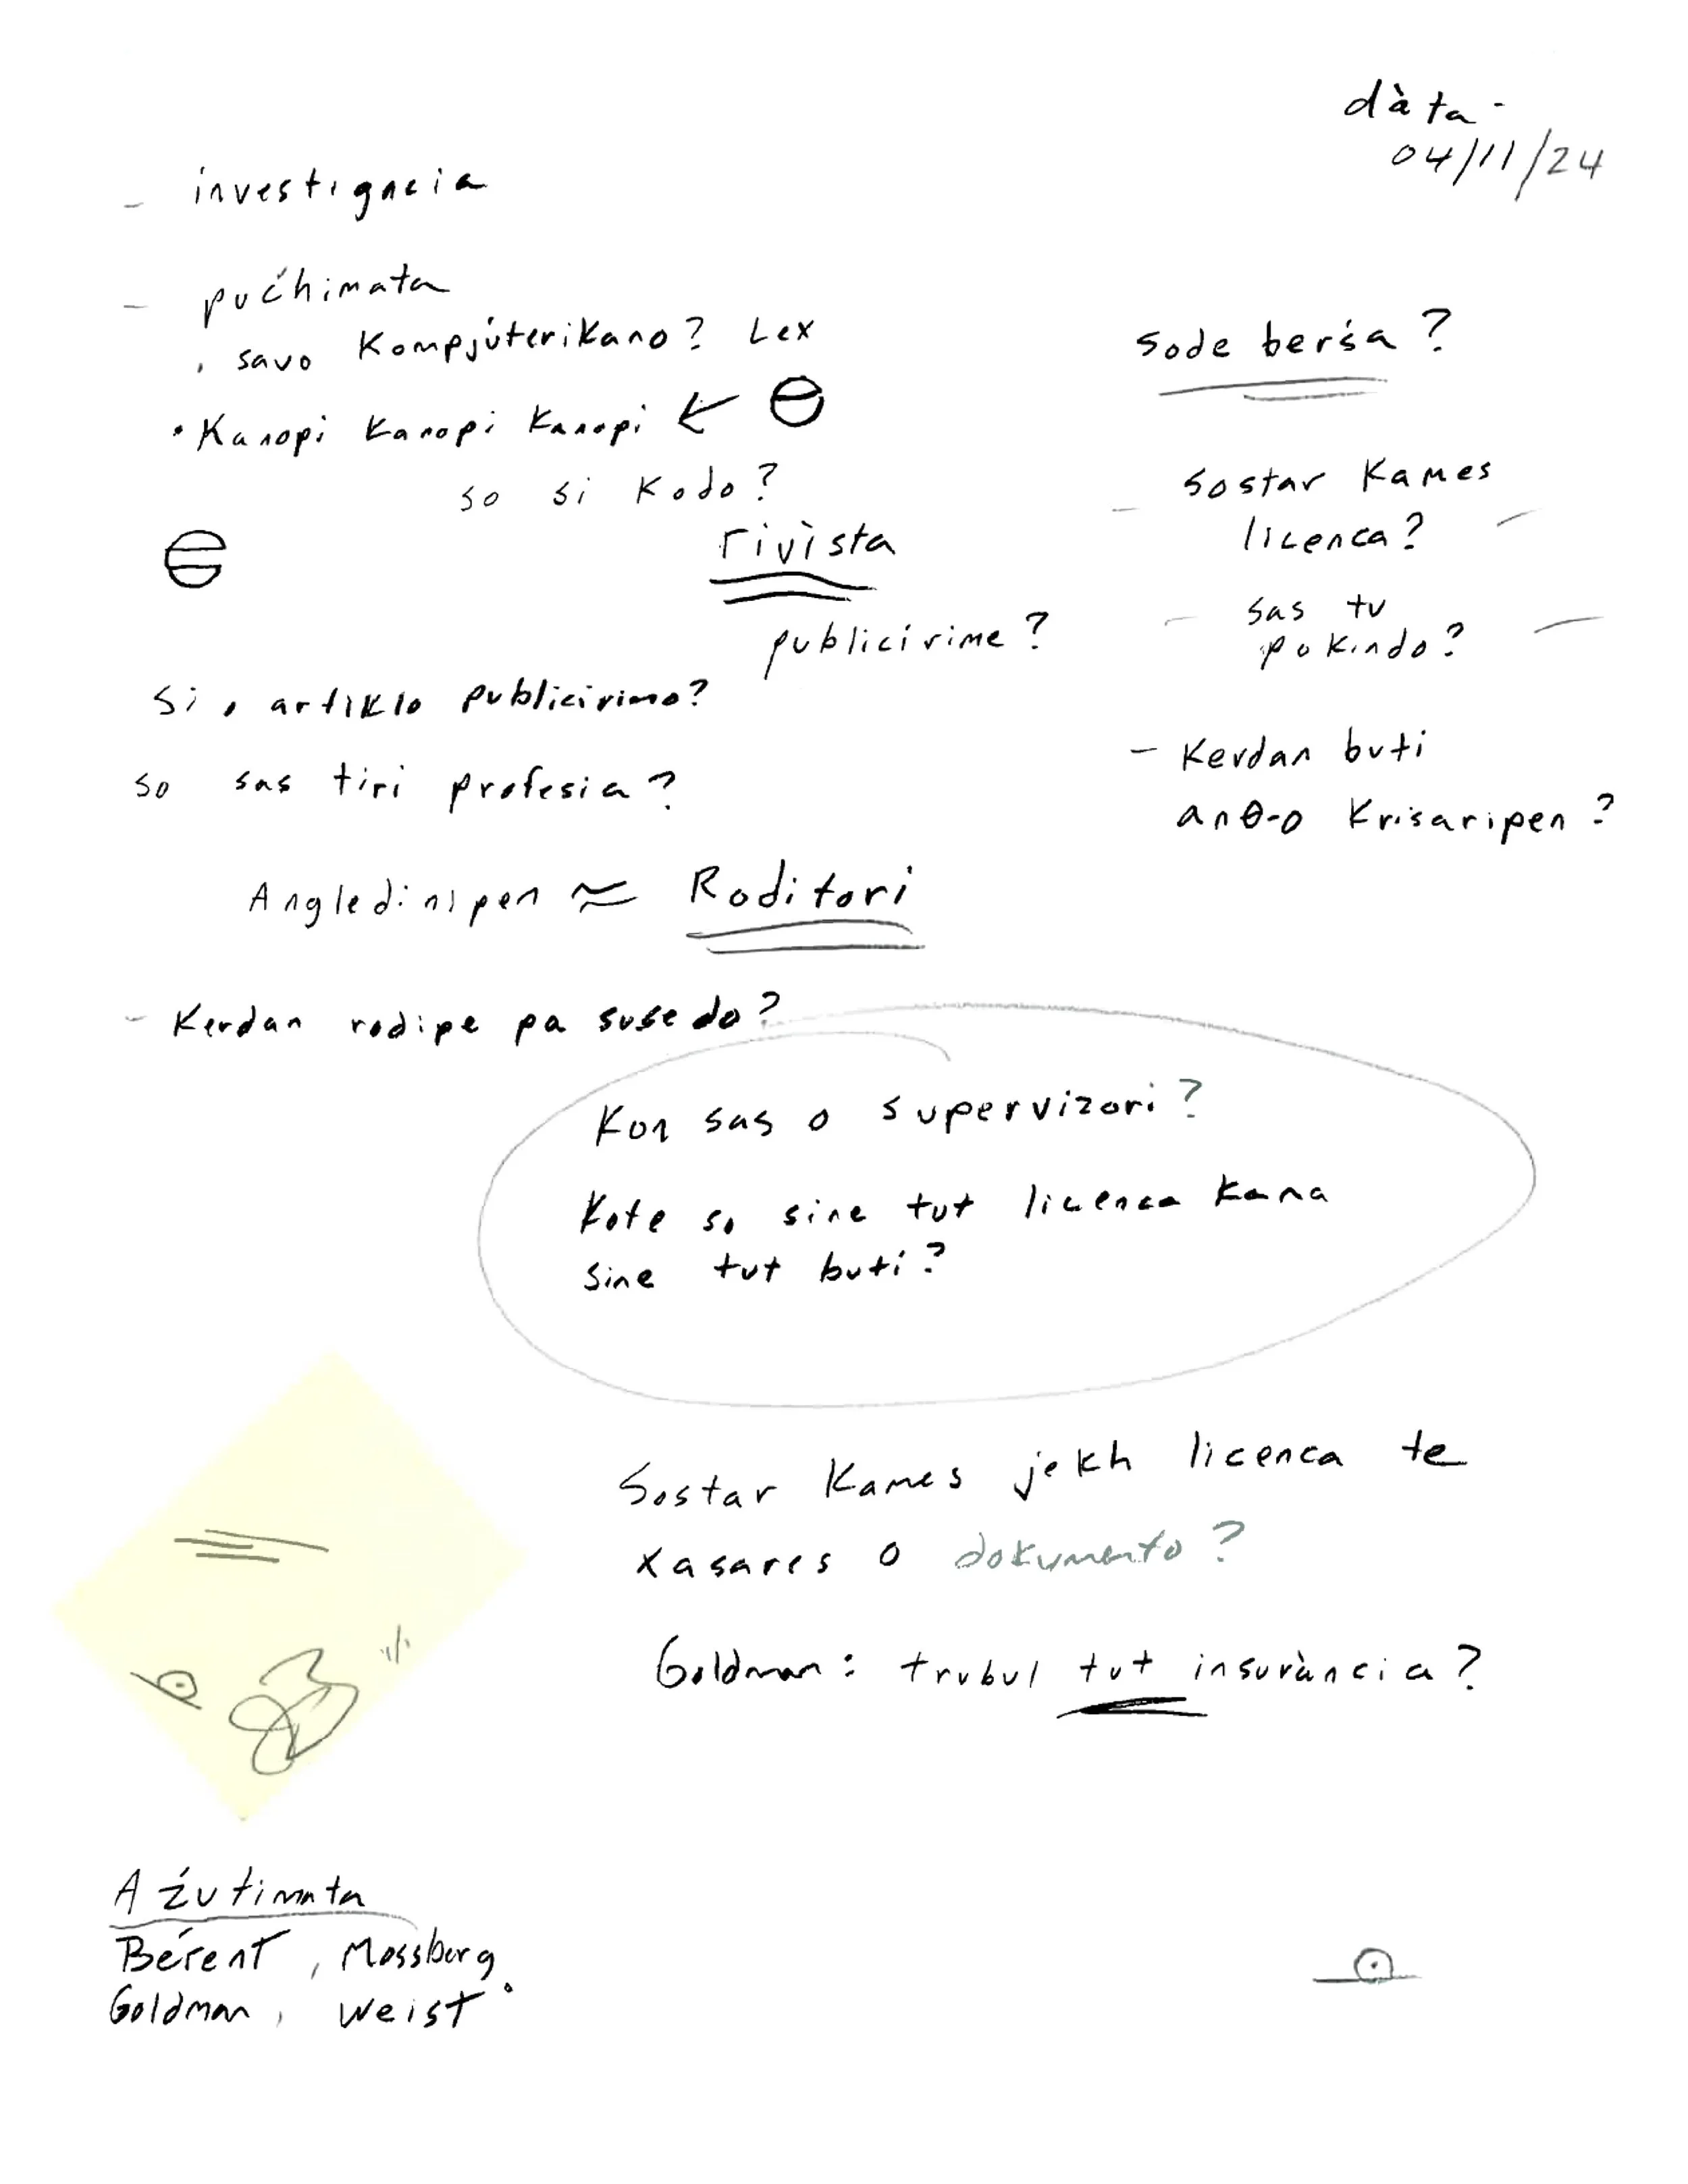 dàta -
04/11/24
- investigacia
- pućhimata
. savo Kompjúterikano? Lex
• Kanopi Kanopi Kanopi ←
so si Kodo?
rivìsta
publicírime?
Si o artiklo publicirimo?
so sas tiri profesia?
Angledinipen ≈ Roditori
- Kerdan rodipe pa susedo?
sode berśa?
- Sostar Kames
licenca?
- sas tu
pokindo?
- Kerdan buti
anθ-o Krisaripen?
Kon sas o supervizori?
Kote so sine tut licenca kana
sine tut buti?
Sostar Kames jekh licenca te
xasares o dokumento?
Goldman: trubul tut insurància?
Aźutimata
Bérent, Mossberg
Goldman, Weist